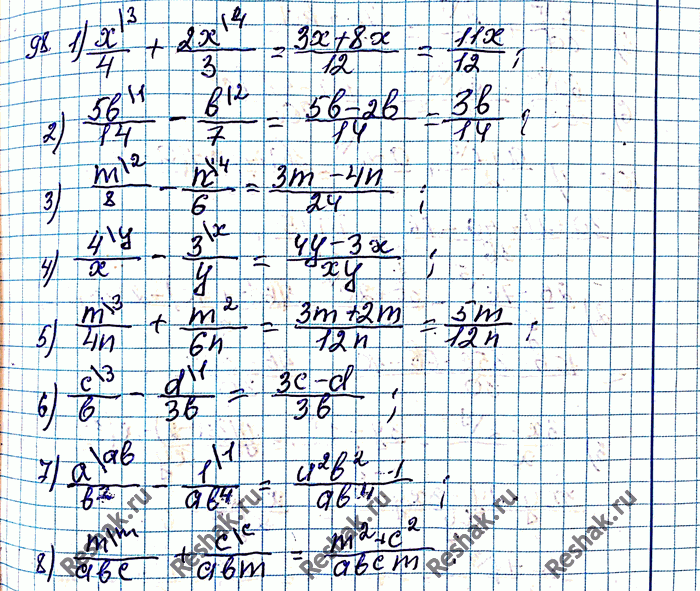 98. 1) x\3/4 + 2x\4/3 = 3x+8x/12 = 11x/12 ;
2) 5b\1/14 - b\2/7 = 5b-2b/14 = 3b/14 ;
3) m\2/8 - n\4/6 = 3m-4n/24 ;
4) 4\y/x - 3\x/y = 4y-3x/xy ;
5) m\3/4n + m 2/6n = 3m+2m/12n = 5m/12n ;
6) c\3/b - d\1/3b = 3c-d/3b ;
7) a\ab/b² - 1\1/ab⁴ = a²b²-1/ab⁴ ;
8) m\m/abc + c\c/abm = m²+c²/abcm ;
Reshak.ru Reshak.ru Reshak.ru Reshak.ru Reshak.ru